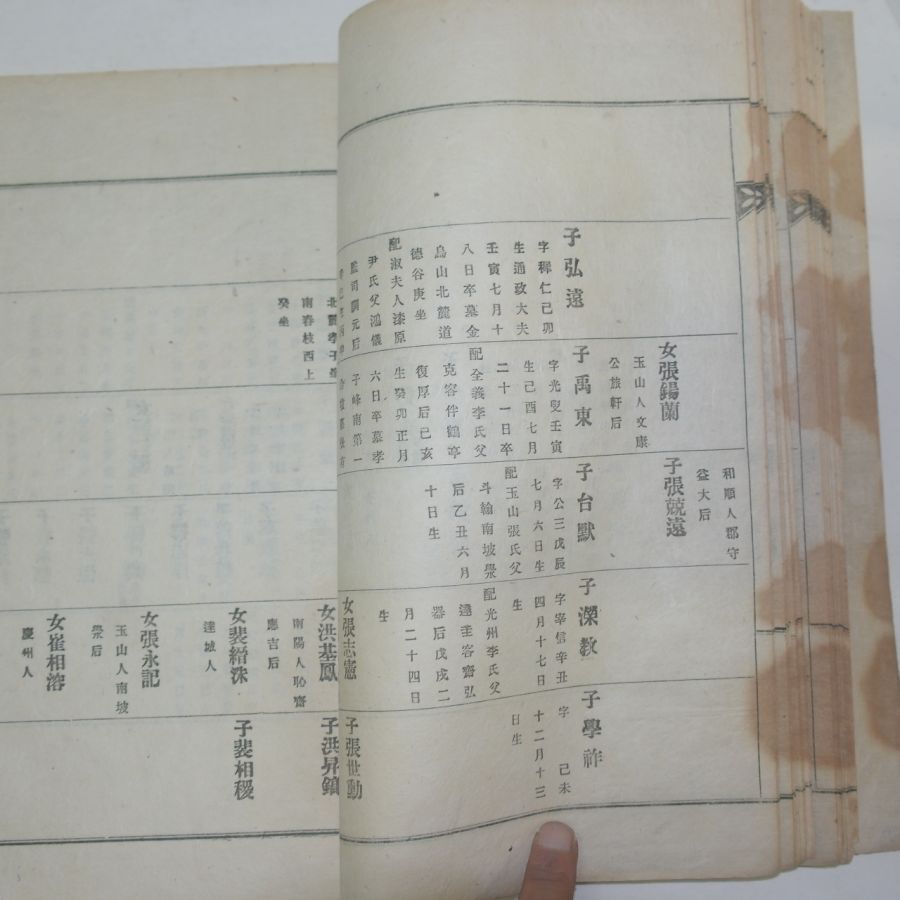 和順人郡守
益大后
女張錫蘭
玉山人文康
公旅軒后
子張兢遠
子弘遠
字穉仁己卯
生通政大夫
壬寅七月十
八日卒墓金
烏山北麓道
德谷庚坐
配淑夫人漆原
尹氏父鴻儀
監司調元后
子禹東
字光叟壬寅
生己酉七月
二十一日卒
配全義李氏父
克容伴鶴亭
復厚后己亥
生癸卯正月
六日卒墓孝
子峰南第一
子台默
字公三戊辰
七月六日生
配玉山張氏父
斗翰南坡㒹
后乙丑六月
十日生
子濚教
字宰信辛丑
四月十七日
生
配光州李氏父
達圭客齋弘
器后戊戌二
月二十四日
生
子學祚
字 己未
十二月十三
日生
女張志憲
子張世勳
南春枝西上
癸坐
女洪基鳳
南陽人恥齋
應吉后
子洪昇鎬
女裴縉洙
達城人
子裴相稷
女張永記
玉山人南坡
㒹后
女崔相溶
慶州人